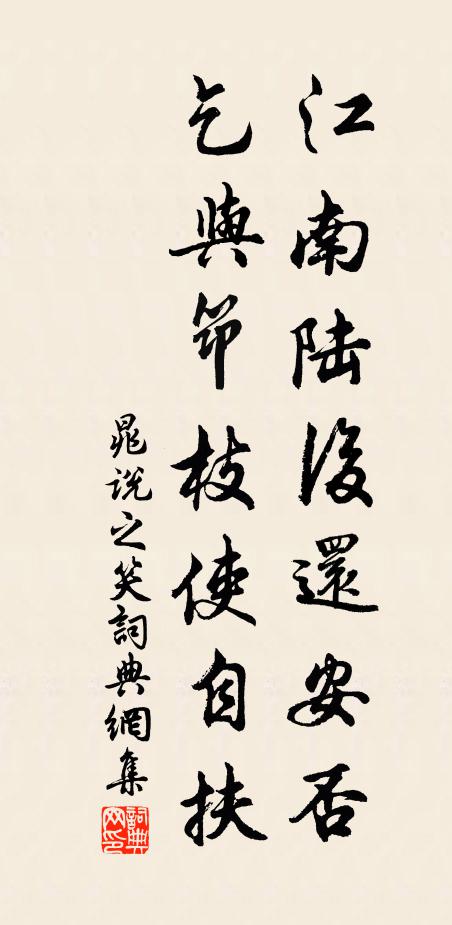 江南陆後還安否
乞與筇枝使自扶
晁説之笑詞典網集
詞典网印